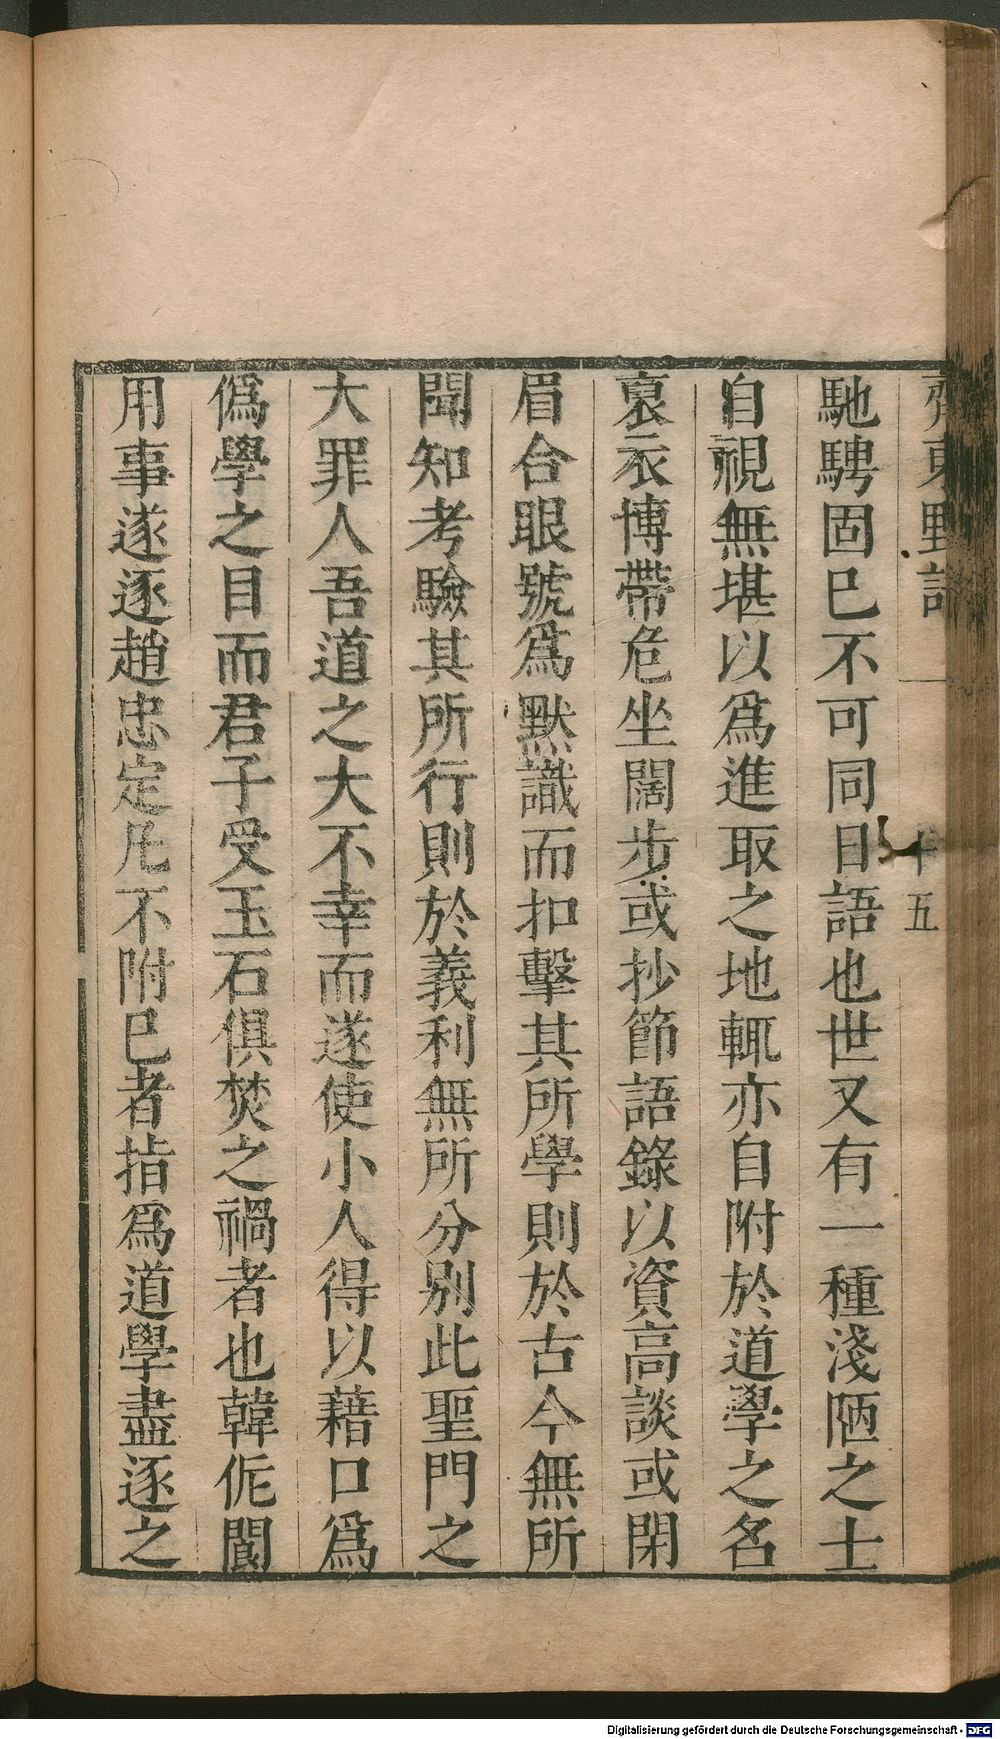 齊東野語
十五
馳騁固已不可同日語也世又有一種淺陋之士
自視無堪以爲進取之地輒亦自附於道學之名
裒衣博帶危坐闊步或抄節語錄以資高談或閉
眉合眼號爲默識而扣擊其所學則於古今無所
聞知考驗其所行則於義利無所分别此聖門之
大罪人吾道之大不幸而遂使小人得以藉口爲
僞學之目而君子受玉石俱焚之禍者也韓侂閽
用事遂逐趙忠定凡不附已者指爲道學盡逐之
Digitalisierung gefördert durch die Deutsche Forschungsgemeinschaft - DFG